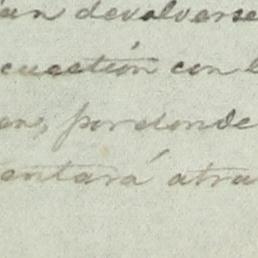 an devolverse
cuestión con l
en, por donde
entará atra